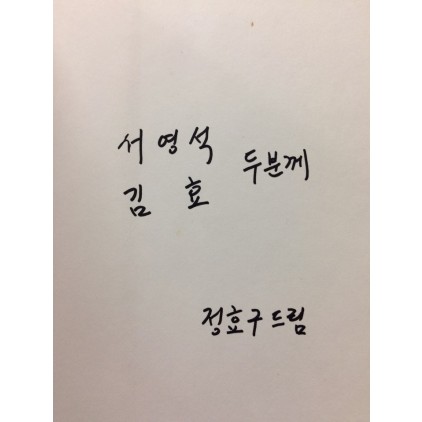 서영석
김 효 두분께
정효구 드림